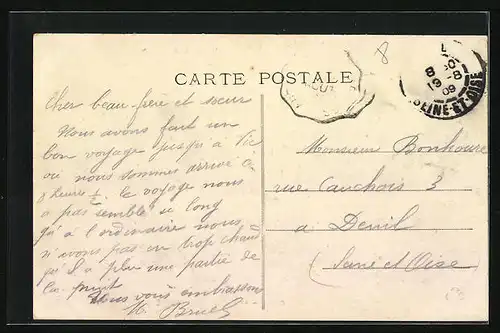 CARTE POSTALE
8
19 -8
09
SEINE-ET-OISE
Cher beau frere et soeur
Nous avons fait un
bon voyage jusqu'à Vic
ou nous sommes arrivé à
heures ½ le voyage nous
a pas semblé si long
qu'à l'ordinaire nous
n'avons pas eu trop chaud
qu'il a plu une partie de
la nuit
Nous vous embrassons
Monsieur Bonhoure
rue Cauchois 3
a Deuil
(Seine et Oise)